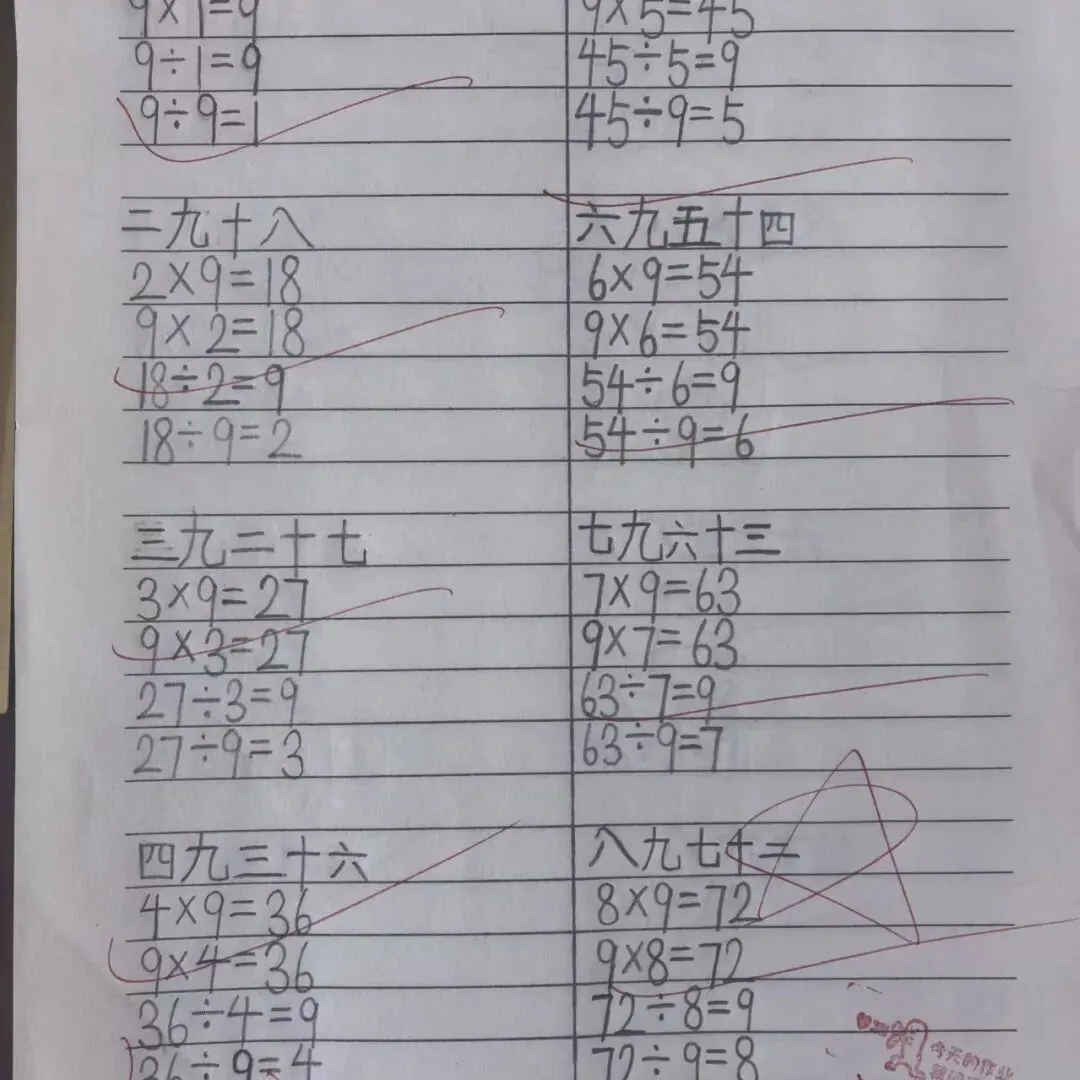 9×1=9
9÷1=9
9÷9=1
二九十八
2×9=18
9×2=18
18÷2=9
18÷9=2
三九二十七
3×9=27
9×3=27
27÷3=9
27÷9=3
四九三十六
4×9=36
9×4=36
36÷4=9
36÷9=4
9×5=45
45÷5=9
45÷9=5
六九五十四
6×9=54
9×6=54
54÷6=9
54÷9=6
七九六十三
7×9=63
9×7=63
63÷7=9
63÷9=7
八九七十二
8×9=72
9×8=72
72÷8=9
72÷9=8
今天的作业